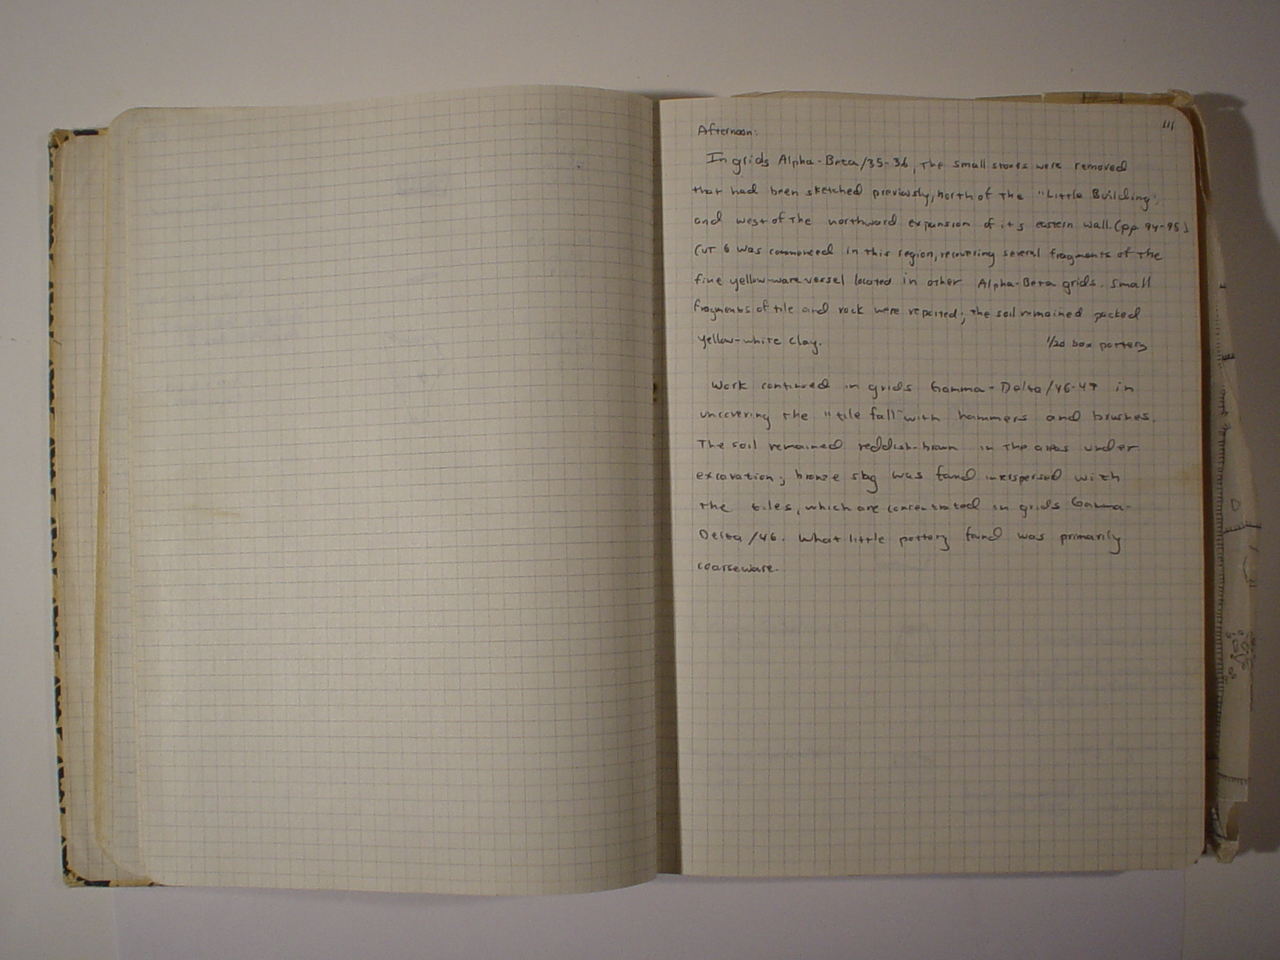 111
Afternoon:
In grids Alpha-Beta/35-36, the small stones were removed
that had been sketched previously, north of the "Little Building",
and west of the northward expansion of its eastern wall. (pp 94-95)
Cut 6 was commenced in this region, recovering several fragments of the
fine yellow-ware vessel located in other Alpha-Beta grids. Small
fragments of tile and rock were reported; the soil remained packed
yellow-white clay. 1/20 box pottery
Work continued in grids Gamma-Delta/46-47 in
uncovering the "tile fall" with hammers and brushes.
The soil remained reddish-brown in the areas under
excavation; bronze slag was found interspersed with
the tiles, which are concentrated in grids Gamma-
Delta/46. What little pottery found was primarily
coarseware.